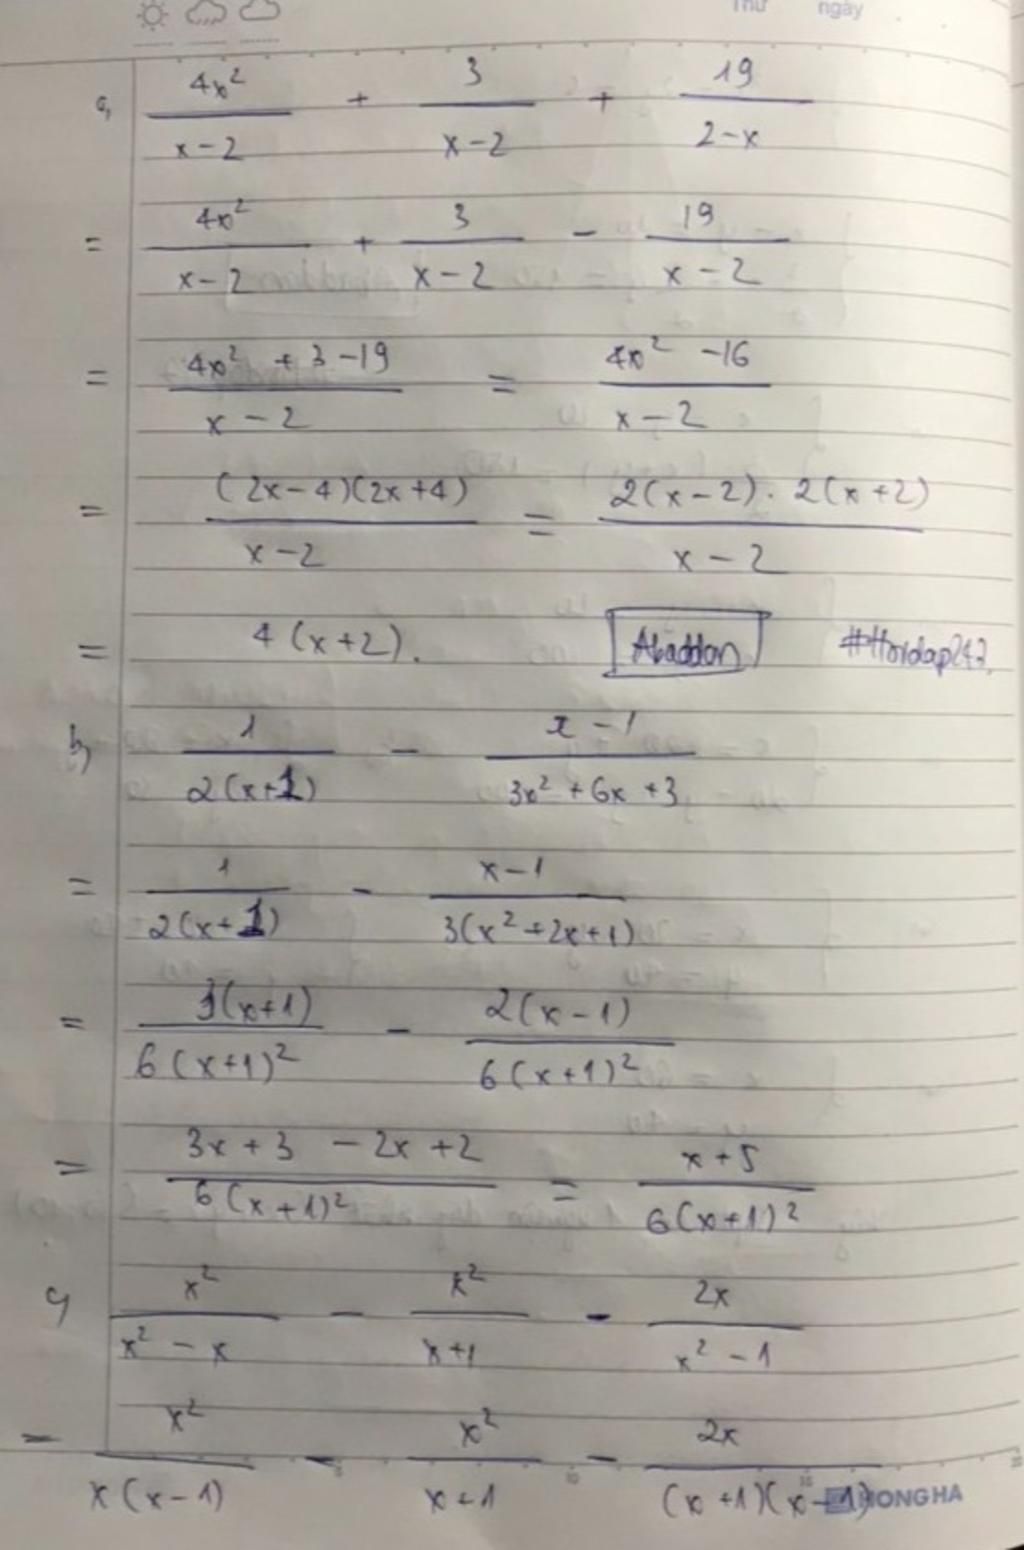 Thứ ngày
a, 4x²/(x-2) + 3/(x-2) + 19/(2-x)
= 4x²/(x-2) + 3/(x-2) - 19/(x-2)
= (4x² + 3 - 19)/(x-2) = (4x² - 16)/(x-2)
= (2x-4)(2x+4)/(x-2) = 2(x-2) . 2(x+2)/(x-2)
= 4(x+2). Abaddon #Hoidap247
b, 1/2(x+1) - (x-1)/(3x²+6x+3)
= 1/2(x+1) - (x-1)/3(x²+2x+1)
= 3(x+1)/6(x+1)² - 2(x-1)/6(x+1)²
= (3x+3 - 2x+2)/6(x+1)² = (x+5)/6(x+1)²
c, x²/(x²-x) - x²/(x+1) - 2x/(x²-1)
= x²/x(x-1) - x²/(x+1) - 2x/(x+1)(x-1)
HONG HA